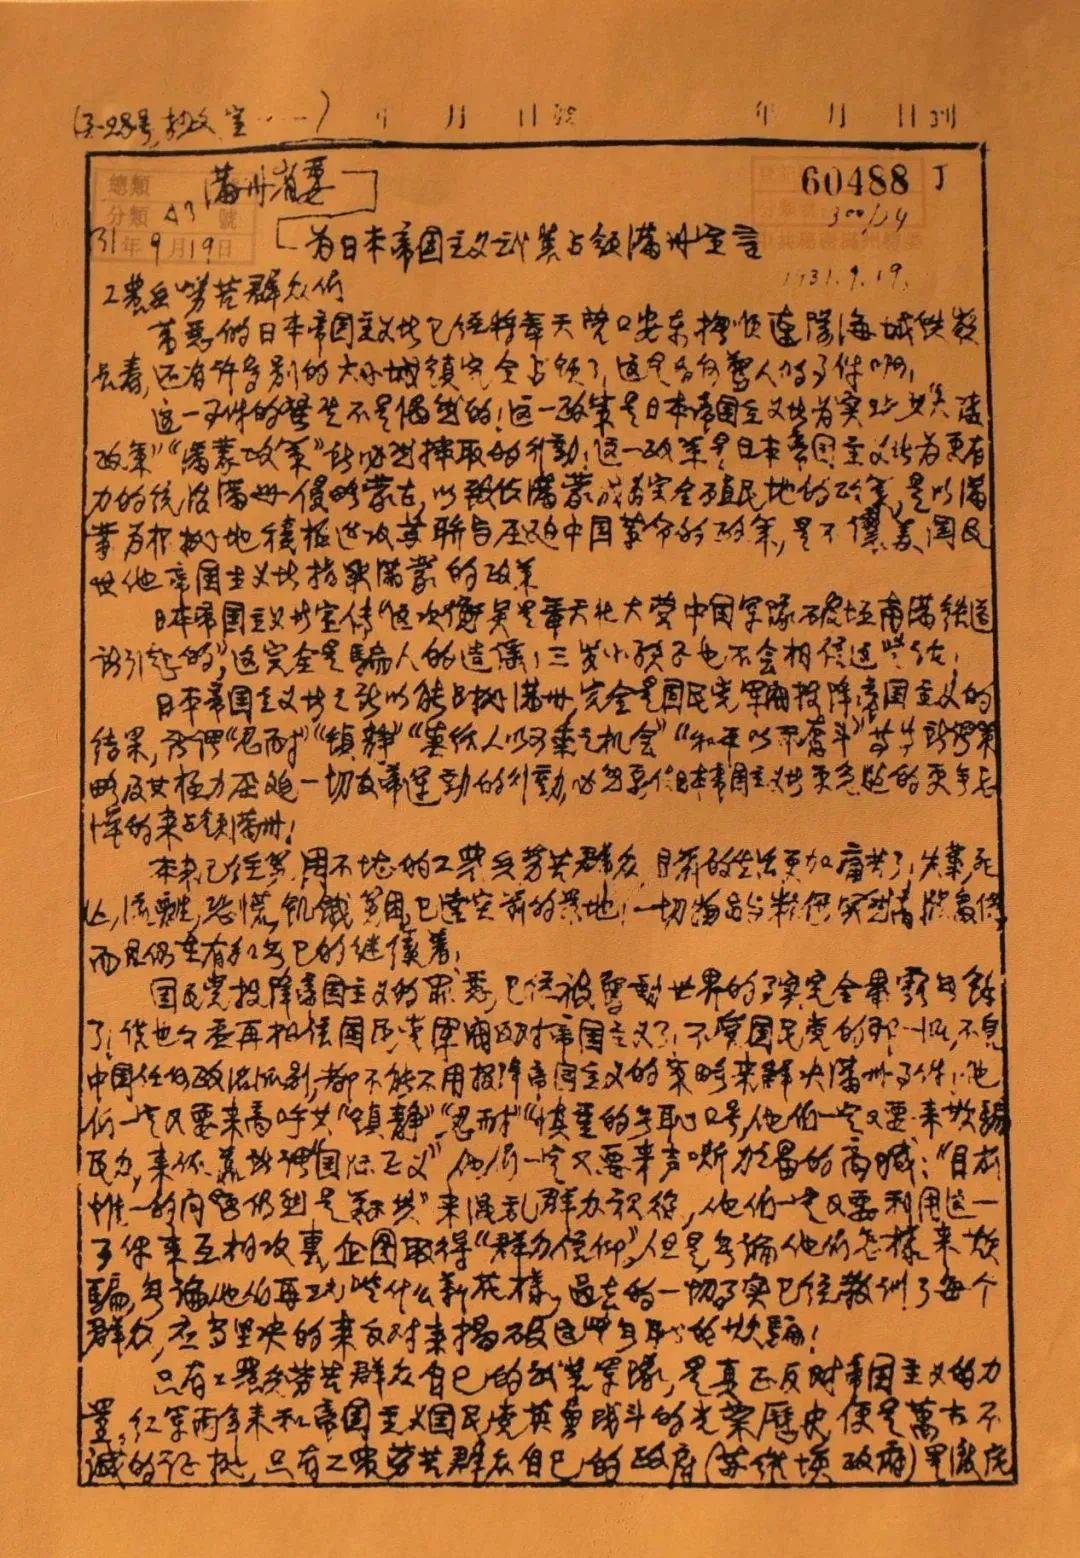 年 月 日 年 月 日到
總類
分類 A3 號
满州省委
60488 J
31年9月19日
为日本帝国主义武装占领满州宣言
1931.9.19.
工农兵劳苦群众们
万恶的日本帝国主义者已经将奉天营口安东撫顺辽陽海城铁嶺
长春,还有许多别的大小城镇完全占领了,这是多么驚人的事件啊!
这一事件的發生不是偶然的!这一政策是日本帝国主义者为实现其大陸
政策""满蒙政策"所必然採取的行動!这一政策是日本帝国主义者为更有
力的统治满州侵略蒙古,以致使满蒙成为完全殖民地的政策,是以满
蒙为根据地積極进攻蘇聯与压迫中国革命的政策,是不讓美国及
其他帝国主义者指染满蒙的政策
日本帝国主义者宣传"这次衝突是奉天北大营中国軍隊破坏南满铁道
所引起的",这完全是騙人的造谣,三岁小孩子也不会相信这些话!
日本帝国主义者之所以能占据满州,完全是国民党軍阀投降帝国主义的
结果,所谓"忍耐""镇静""莫给人以可乘之机会""和平以示奋斗"等等的策
略及其極力压迫一切反帝运動的行動,必然要使日本帝国主义者更急进的更无忌
惮的来占领满州!
本来已经窮困不堪的工农兵劳苦群众,目前的生活更加痛苦了,失業死
亡,流離,恐慌,飢餓窮困,已達空前的景地!一切物品与粮食突然高漲高價,
而且仍在有加无已的继續著!
国民党投降帝国主义的罪恶,已经被驚動世界的事实完全暴露无餘
了!谁也不要再相信国民党軍阀反对帝国主义了!不管国民党的那一派,不管
中国任何政治派别,都不能不用投降帝国主义的策略来解决满州事件!他
们一定又要来高呼其"镇静""忍耐""慎重的无耻口号,他们一定又要来欺騙
民众,来依靠所谓"国际正义"他们一定又要来声嘶力竭的高喊:"目前
惟一的问题仍然是剿共"来混乱群众视線,他们一定又要利用这一
事件来互相攻擊,企图取得"群众信仰",但是无论他们怎樣来欺
騙,无论他们再玩些什么新花樣,过去的一切事实已经教训了每个
群众,应当坚决的来反对来揭破这些无耻的欺騙!
只有工农兵劳苦群众自己的武装軍隊,是真正反对帝国主义的力
量,红军两年来和帝国主义国民党英勇战斗的光荣歷史,便是萬古不
滅的证据,只有工农劳苦群众自己的政府(苏维埃政府)是澈底